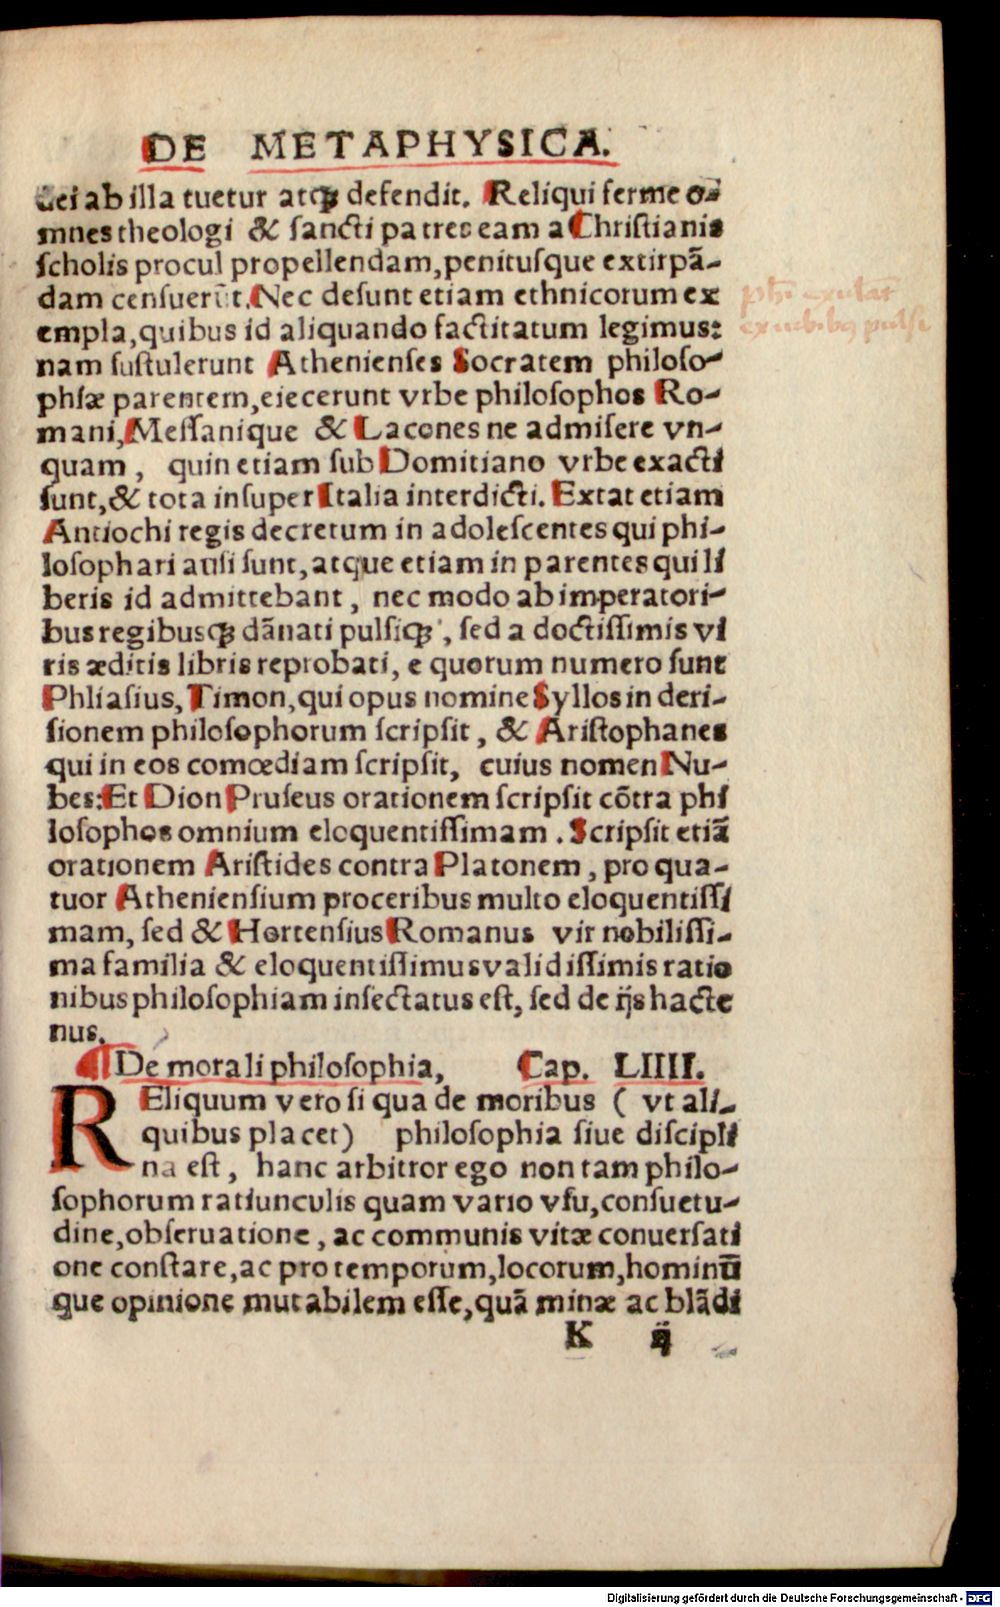 DE METAPHYSICA.
dei ab illa tuetur atqꝫ defendit. Reliqui ferme o-
mnes theologi & ſancti patres eam a Chriſtianis
ſcholis procul propellendam, penituſque extirpā-
dam cenſuerūt. Nec deſunt etiam ethnicorum ex
empla, quibus id aliquando factitatum legimus:
nam ſuſtulerunt Athenienſes Socratem philoſo-
phiæ parentem, eiecerunt vrbe philoſophos Ro-
mani, Meſſanique & Lacones ne admiſere vn-
quam, quin etiam ſub Domitiano vrbe exacti
ſunt, & tota inſuper Italia interdicti. Extat etiam
Antiochi regis decretum in adoleſcentes qui phi-
loſophari auſi ſunt, atque etiam in parentes qui li
beris id admittebant, nec modo ab imperatori-
bus regibusqꝫ dānati pulſiqꝫ, ſed a doctiſſimis vi
ris æditis libris reprobati, e quorum numero ſunt
Phliaſius, Timon, qui opus nomine Syllos in deri-
ſionem philoſophorum ſcripſit, & Ariſtophanes
qui in eos comœdiam ſcripſit, cuius nomen Nu-
bes: Et Dion Pruſeus orationem ſcripſit cōtra phi
loſophos omnium eloquentiſſimam. Scripſit etiā
orationem Ariſtides contra Platonem, pro qua-
tuor Athenienſium proceribus multo eloquentiſſi
mam, ſed & Hortenſius Romanus vir nobiliſſi-
ma familia & eloquentiſſimus validiſſimis ratio
nibus philoſophiam inſectatus eſt, ſed de ijs hacte
nus.
¶ De morali philoſophia, Cap. LIIII.
REliquum vero ſi qua de moribus ( vt ali-
quibus placet) philoſophia ſiue diſcipli
na eſt, hanc arbitror ego non tam philo-
ſophorum ratiunculis quam vario vſu, conſuetu-
dine, obſeruatione, ac communis vitæ conuerſati
one conſtare, ac pro temporum, locorum, hominū
que opinione mutabilem eſſe, quā minæ ac blādi
K ij
phī exulāt
ex urbibus pulsi
Digitalisierung gefördert durch die Deutsche Forschungsgemeinschaft - DFG